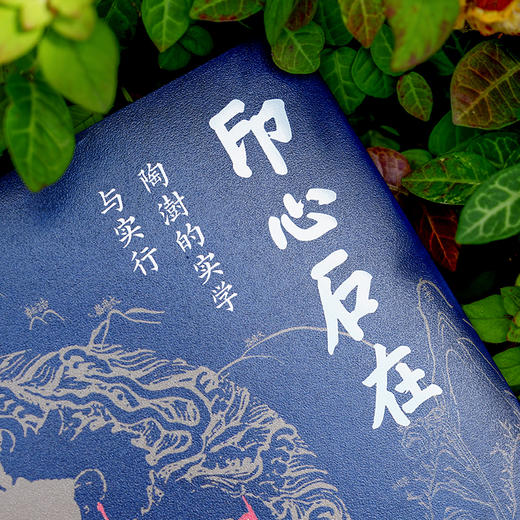 印心石在
陶澍的实学
与实行